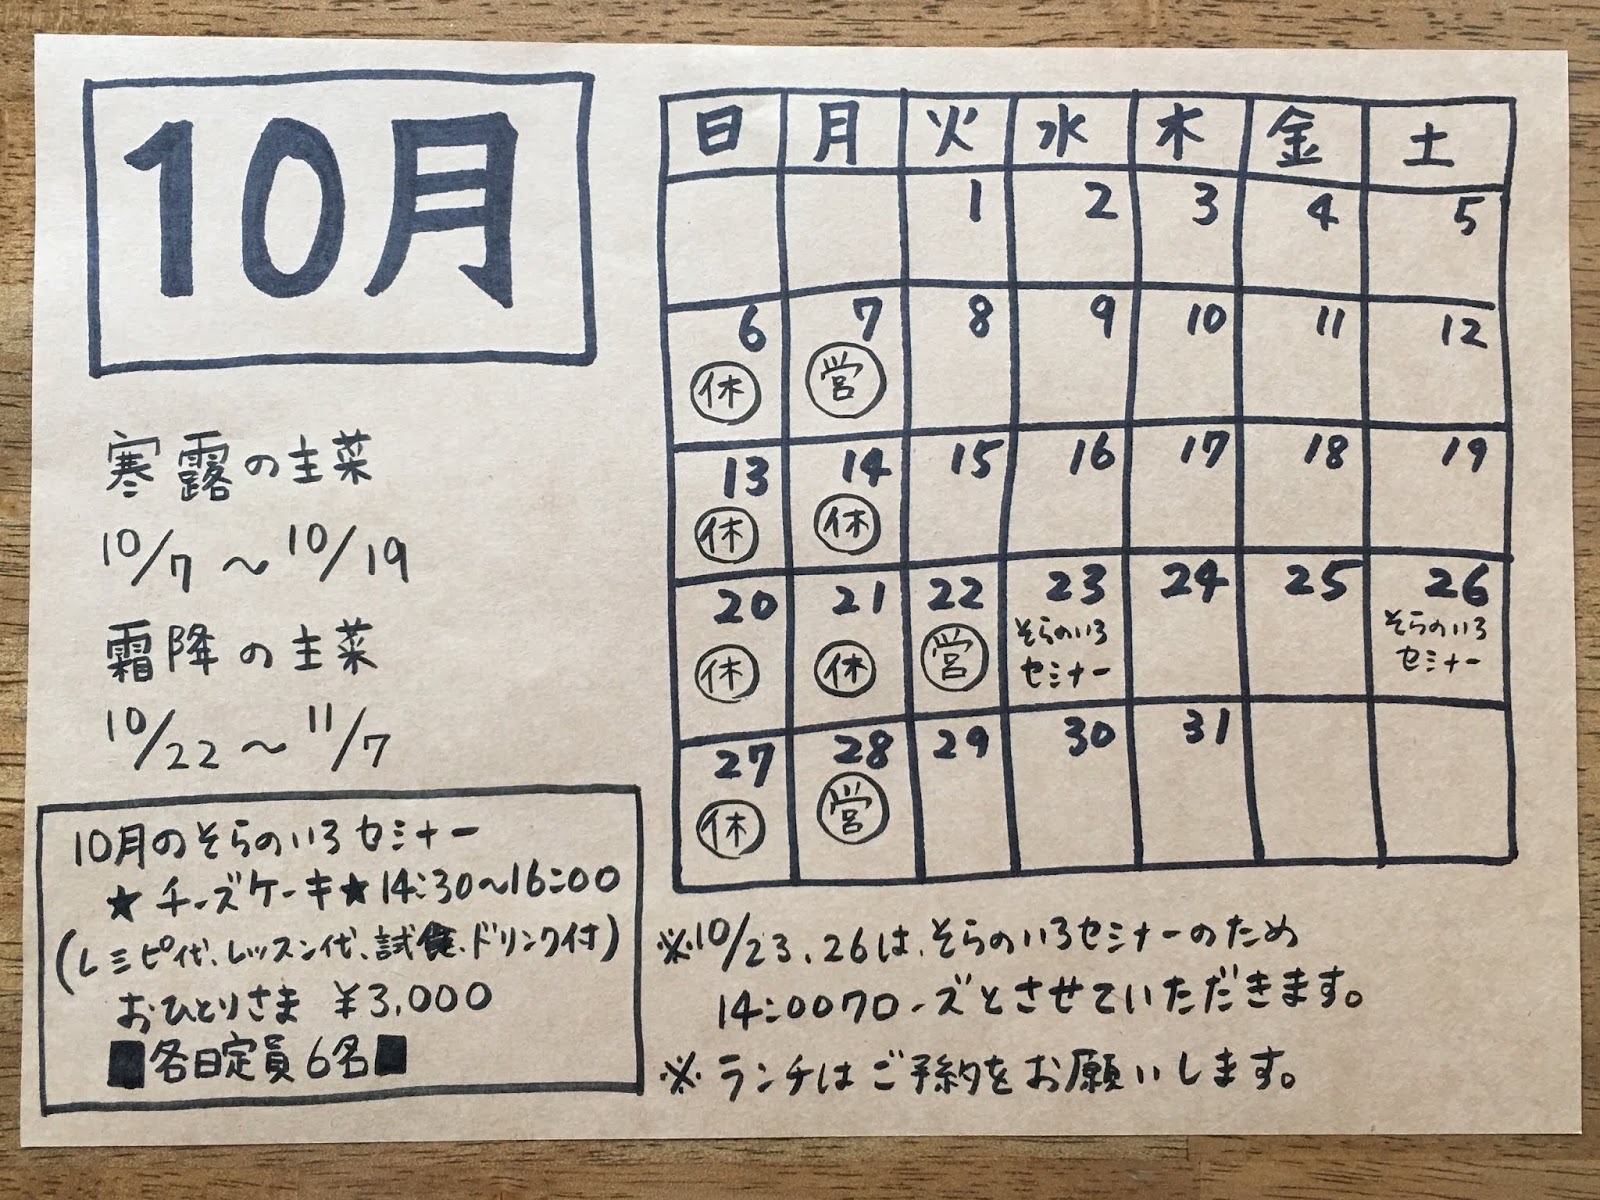 10月
寒露の主菜
10/7 〜 10/19
霜降の主菜
10/22 〜 11/7
10月のそらのいろセミナー
★チーズケーキ★14:30〜16:00
(レシピ代、レッスン代、試食、ドリンク付)
おひとりさま ¥3,000
■各日定員6名■
日 月 火 水 木 金 土
1 2 3 4 5
6 7 8 9 10 11 12
休 営
13 14 15 16 17 18 19
休 休
20 21 22 23 24 25 26
休 休 営 そらのいろ セミナー そらのいろ セミナー
27 28 29 30 31
休 営
※10/23、26は、そらのいろセミナーのため
14:00クローズとさせていただきます。
※ランチはご予約をお願いします。